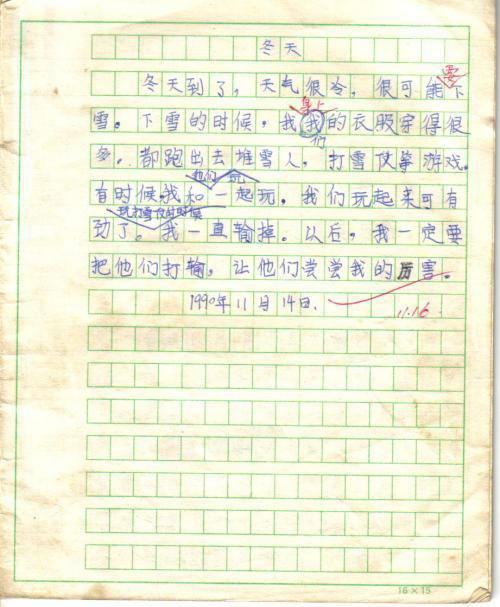 冬天
冬天到了，天气很冷，很可能下
要
雪。下雪的时候，我我的衣服穿得很
身上
们
多。都跑出去堆雪人，打雪仗等游戏。
有时候我和一起玩。我们玩起来可有
他们 玩
劲了。我一直输掉。以后，我一定要
玩打雪仗的时候
把他们打输，让他们尝尝我的厉害。
1990年11月14日.
11.16
16×15